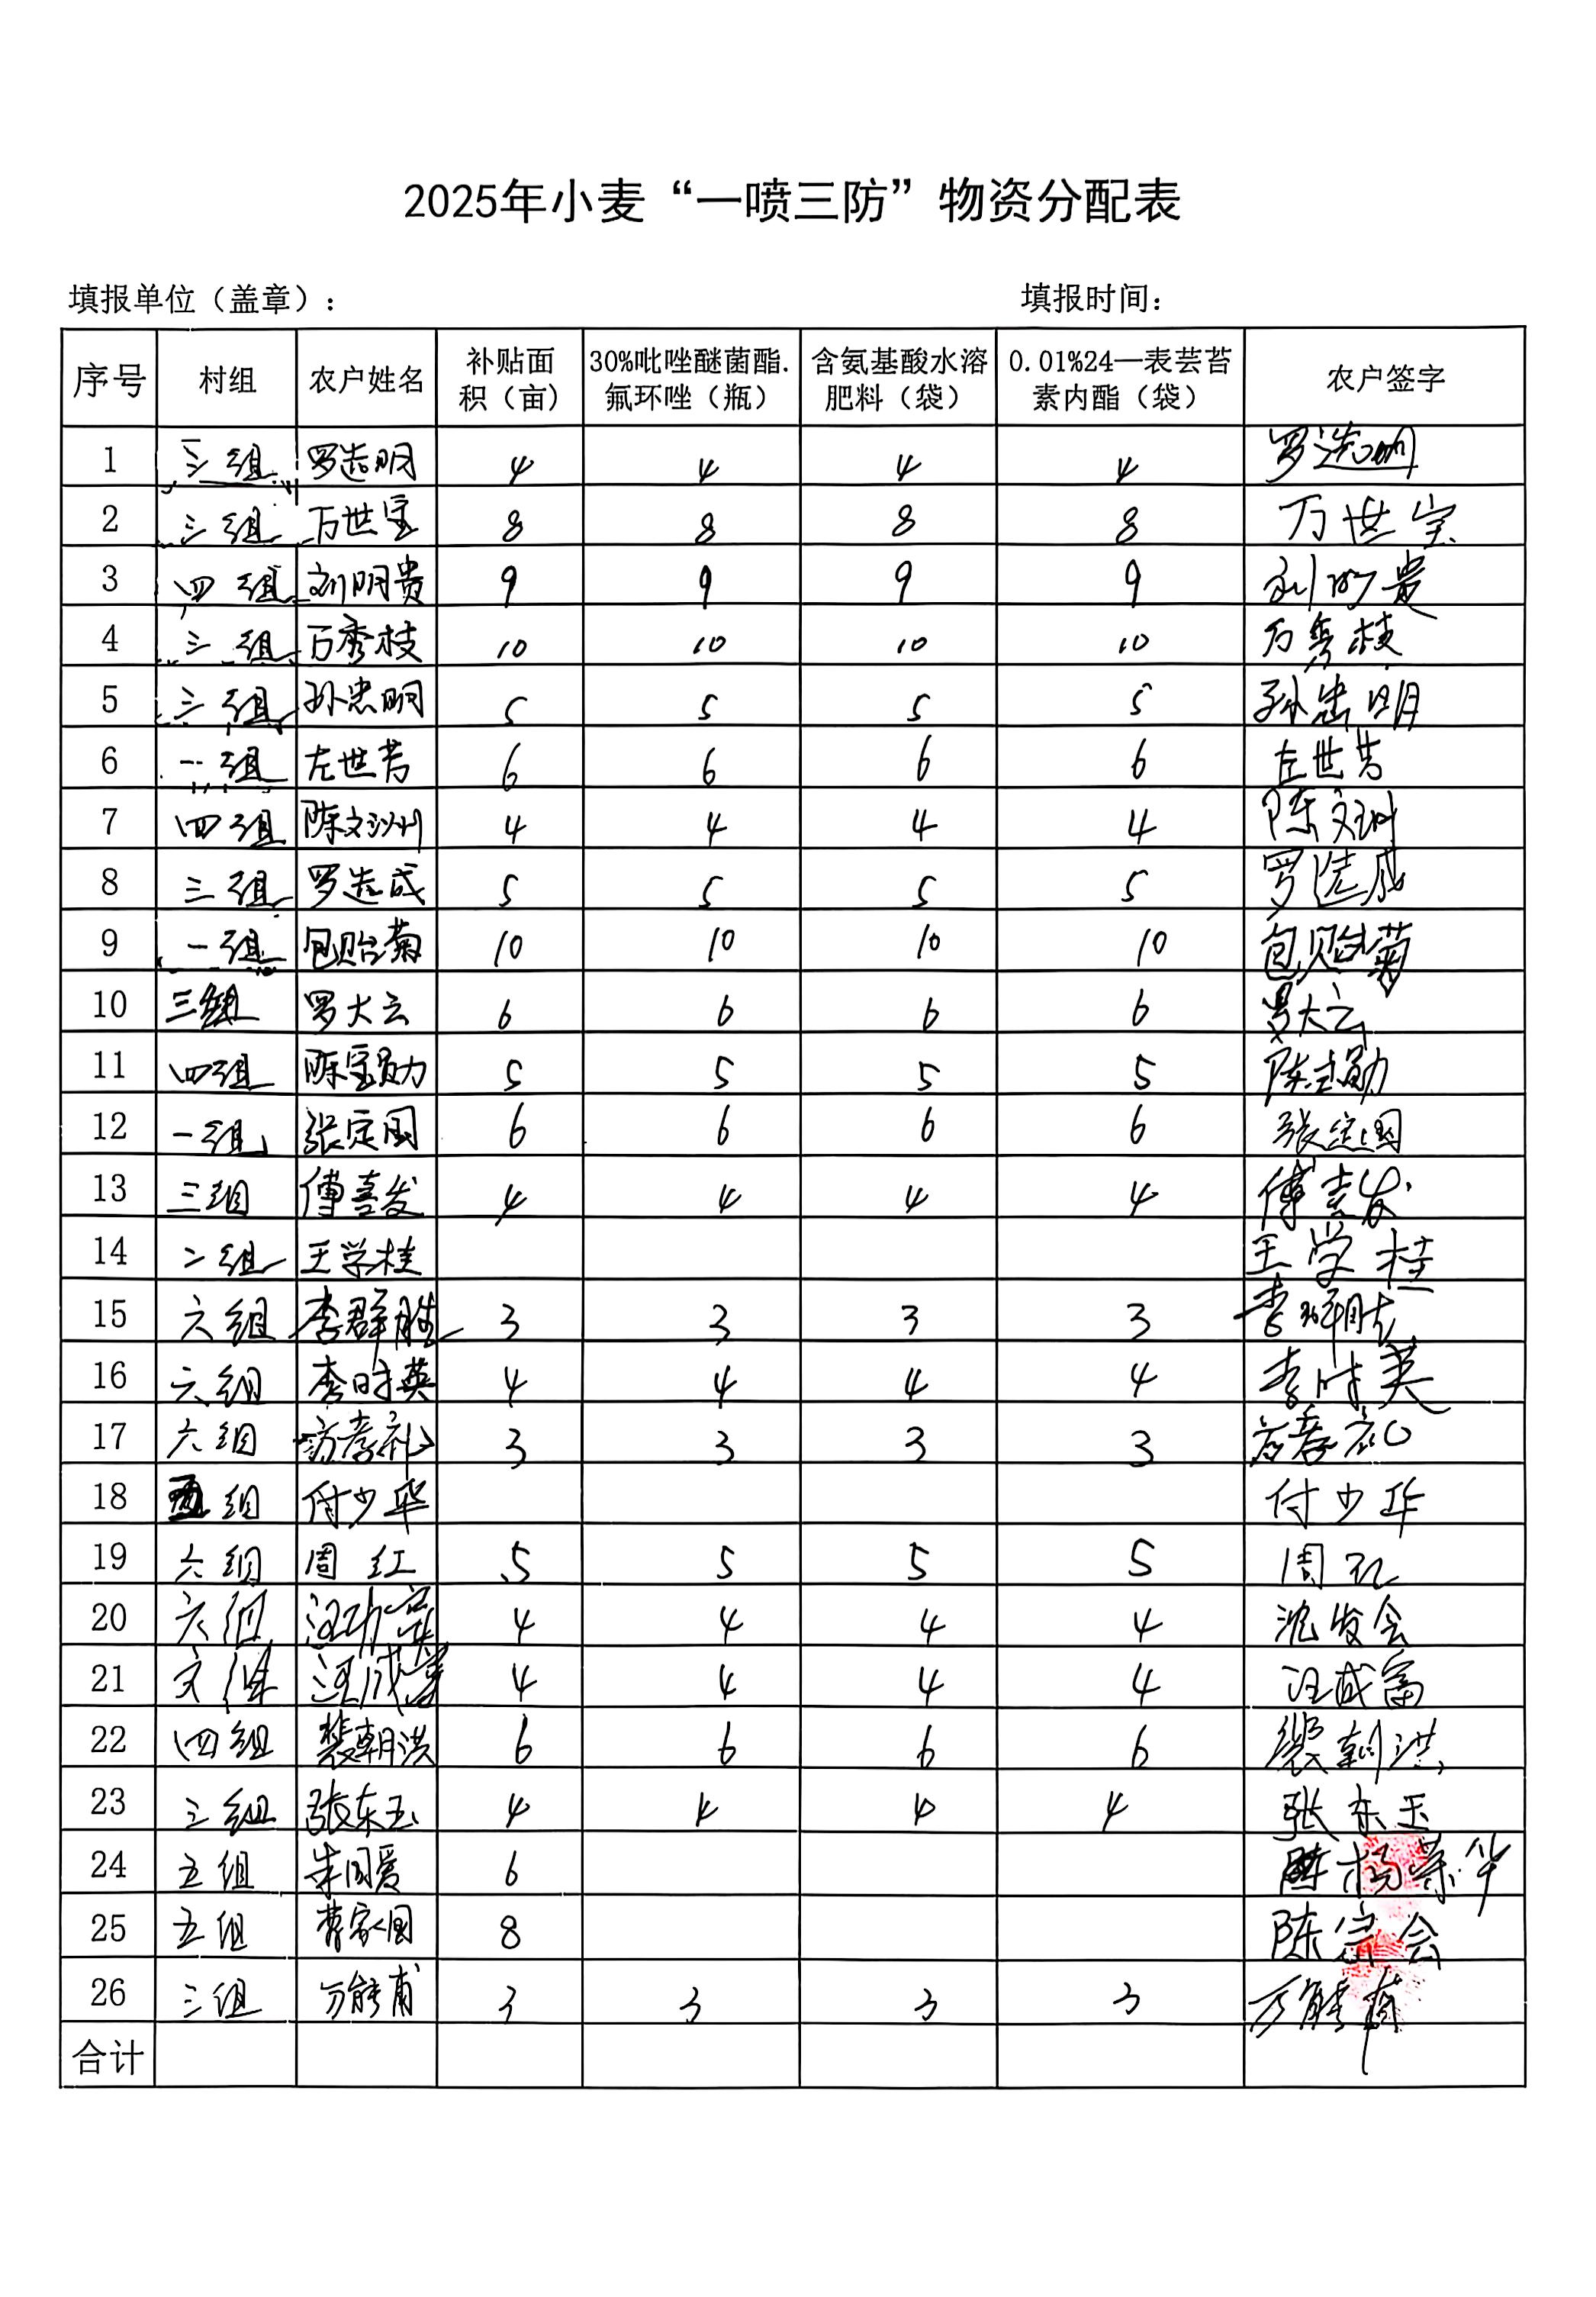 2025年小麦“一喷三防”物资分配表
填报单位（盖章）： 填报时间：
序号 村组 农户姓名 补贴面积（亩） 30%吡唑醚菌酯.氟环唑（瓶） 含氨基酸水溶肥料（袋） 0.01%24—表芸苔素内酯（袋） 农户签字
1 三组 罗选明 4 4 4 4 罗选明
2 三组 万世宝 8 8 8 8 万世宝
3 四组 刘明贵 9 9 9 9 刘明贵
4 三组 万秀枝 10 10 10 10 万秀枝
5 三组 孙忠明 5 5 5 5 孙忠明
6 一组 左世芳 6 6 6 6 左世芳
7 四组 陈文洲 4 4 4 4 陈文洲
8 三组 罗选成 5 5 5 5 罗选成
9 一组 包贻菊 10 10 10 10 包贻菊
10 三组 罗大云 6 6 6 6 罗大云
11 四组 陈宝勋 5 5 5 5 陈宝勋
12 一组 张定国 6 6 6 6 张定国
13 三组 傅喜发 4 4 4 4 傅喜发
14 二组 王学桂 王学桂
15 六组 李群胜 3 3 3 3 李群胜
16 六组 李时英 4 4 4 4 李时英
17 六组 3 3 3 3
18 五组 付少华 付少华
19 六组 周红 5 5 5 5 周红
20 六组 4 4 4 4 沈发会
21 六组 汪成富 4 4 4 4 汪成富
22 四组 裴朝洪 6 6 6 6 裴朝洪
23 三组 张东玉 4 4 4 4 张东玉
24 五组 朱国爱 6
25 五组 曹家国 8 陈宗会
26 三组 万能甫 3 3 3 3 万能甫
合计